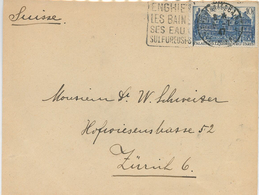 Suisse
ENGHIEN
LES BAINS
SES EAUX
SULFUREUSES
Monsieur Dr W. Schweizer
Hofwiesenstrasse 52
Zürich 6.